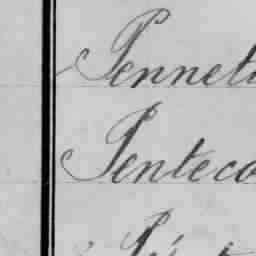 Pennet
Penteco